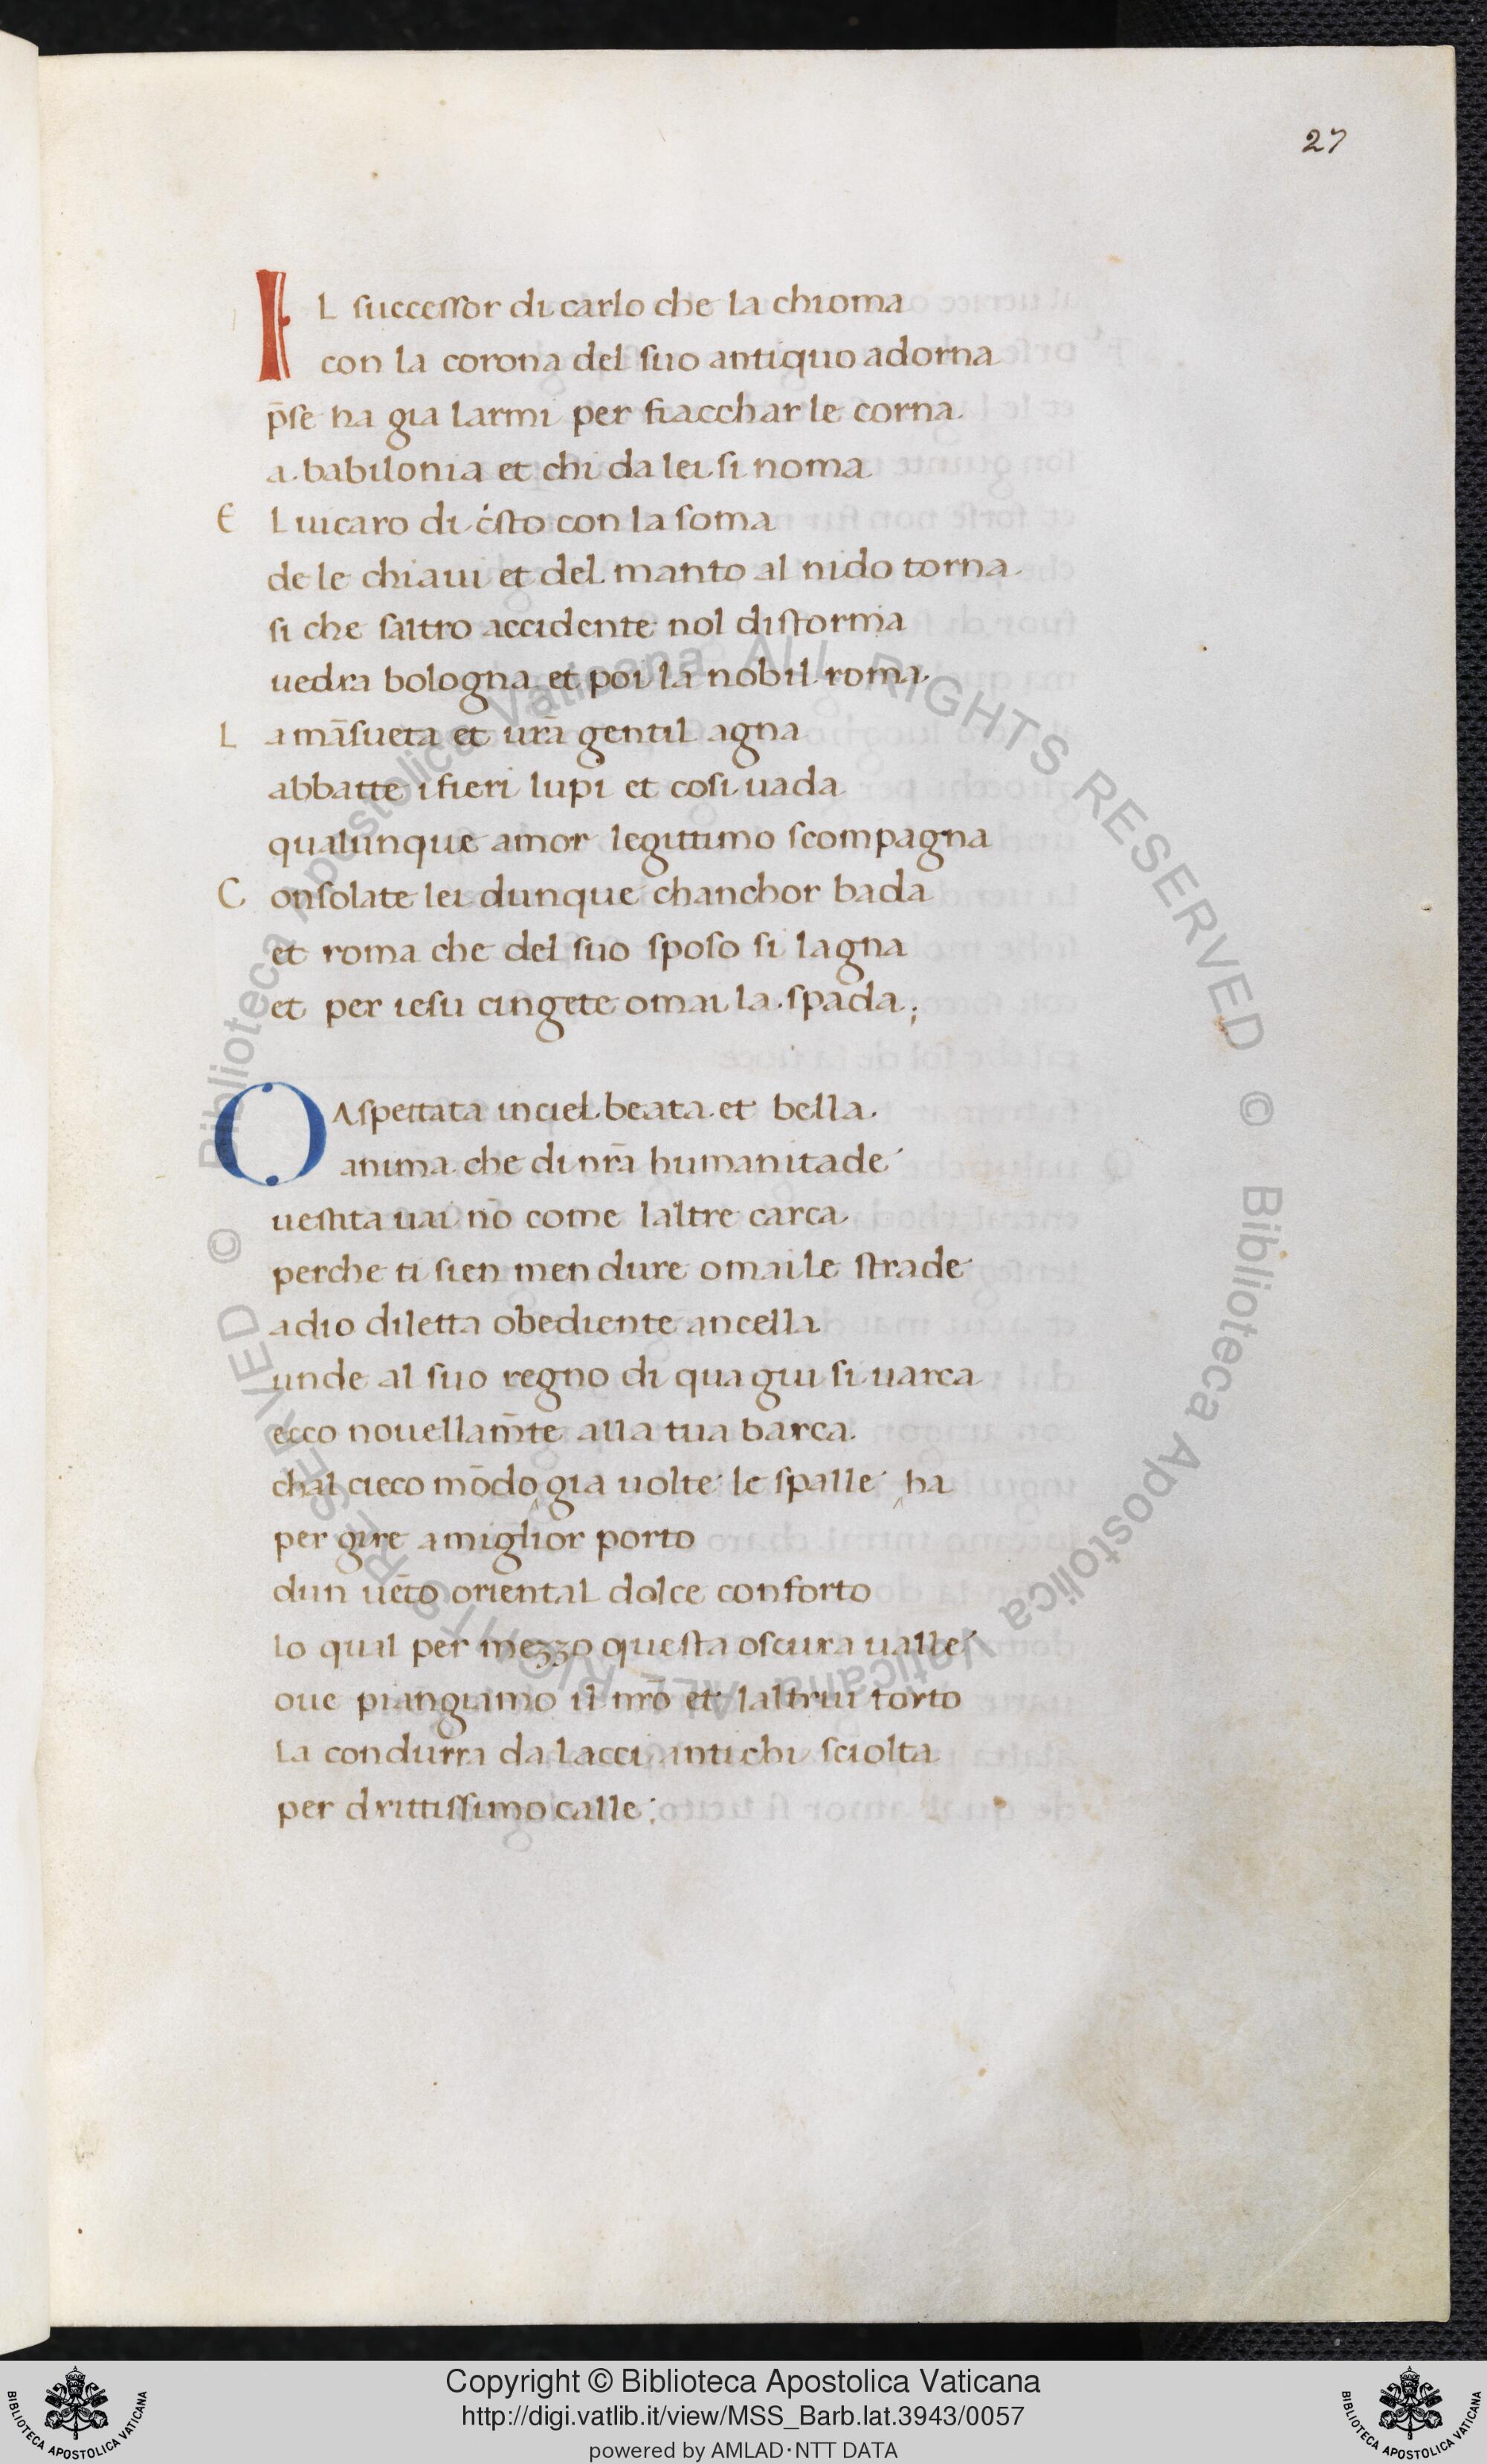 27
IL succeſſor di carlo che la chioma
con la corona del ſuo antiquo adorna
p̄ſe ha gia larmi per fiacchar le corna
a babilonia et chi da lei ſi noma
E L uicaro di c̓ſto con la ſoma
de le chiaui et del manto al nido torna
ſi che ſaltro accidente nol diſtorna
uedra bologna et poi la nobil roma
L a mãſueta et ur̄a gentil agna
abbatte i fieri lupi et coſi uada
qualunque amor legittimo ſcompagna
C onſolate lei dunque chanchor bada
et roma che del ſuo ſpoſo ſi lagna
et per ieſu cingete omai la ſpada;
O Aſpettata in ciel beata et bella
anima che di nr̄a humanitade
ueſtita uai nō come laltre carca
perche ti ſien men dure omai le ſtrade
a dio diletta obediente ancella
unde al ſuo regno di qua giu ſi uarca
ecco nouellam̄te alla tua barca
chal cieco mōdo gia uolte le ſpalle ha
per gire a miglior porto
dun uēto oriental dolce conforto
lo qual per mezzo queſta oſcura ualle
oue piangiamo il nr̄o et laltrui torto
la condurra da lacci antichi ſciolta
per drittiſſimo calle;
Biblioteca Apostolica Vaticana ALL RIGHTS RESERVED ©
Biblioteca Apostolica Vaticana ALL RIGHTS RESERVED ©
BIBLIOTECA APOSTOLICA VATICANA
Copyright © Biblioteca Apostolica Vaticana
http://digi.vatlib.it/view/MSS_Barb.lat.3943/0057
powered by AMLAD·NTT DATA
BIBLIOTECA APOSTOLICA VATICANA